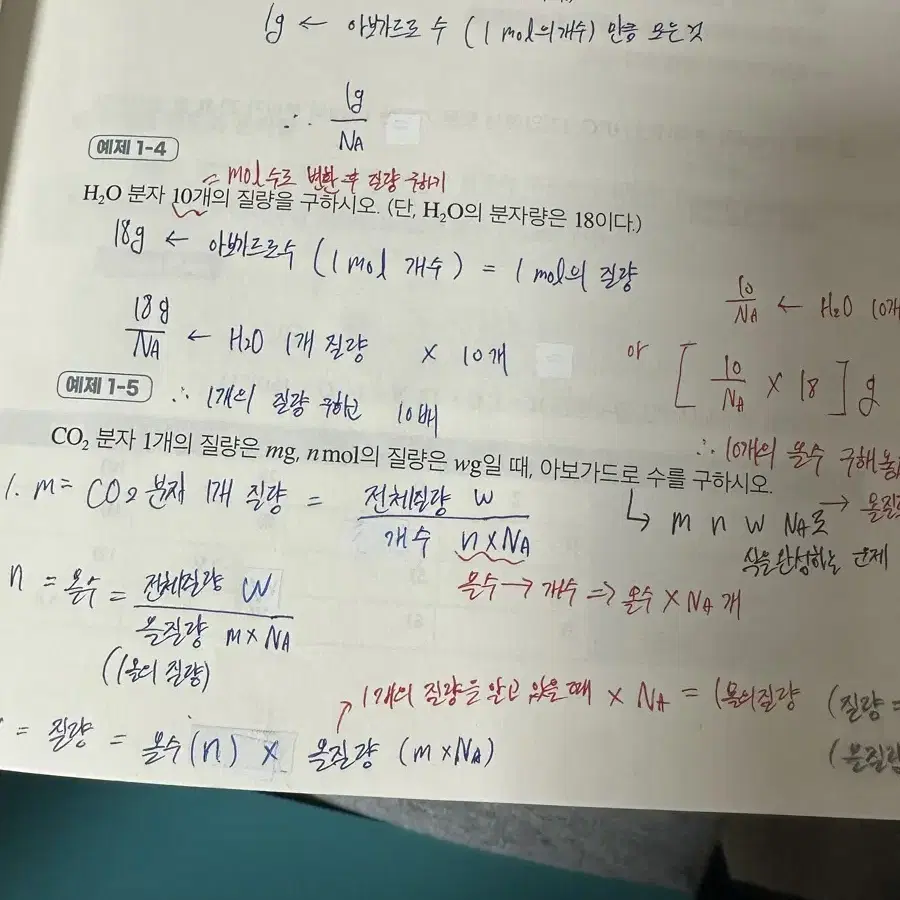 1g ← 아보가드로 수 (1 mol의 개수) 만큼 모은것
∴ 1g / NA
예제 1-4
= mol 수로 변환 후 질량 구하기
H₂O 분자 10개의 질량을 구하시오. (단, H₂O의 분자량은 18이다.)
18g ← 아보가드로수 (1 mol 개수) = 1 mol의 질량
18g / NA ← H₂O 1개 질량 × 10개
10 / NA ← H₂O 10개
or [ 10 / NA × 18 ] g
예제 1-5
∴ 1개의 질량 구하고 10배
∴ 10개의 몰수 구해
CO₂ 분자 1개의 질량은 mg, n mol의 질량은 wg일 때, 아보가드로 수를 구하시오.
1. m = CO₂ 분자 1개 질량 = 전체질량 w / 개수 n×NA
↳ m n w NA로
식을 완성하는 문제
몰수 → 개수 => 몰수 × NA 개
n = 몰수 = 전체질량 W / 몰질량 m×NA
(1몰의 질량)
↗ 1개의 질량을 알고 있을 때 × NA = 1몰의질량
(질량 =
= 질량 = 몰수(n) × 몰질량 (m×NA)
(몰질량